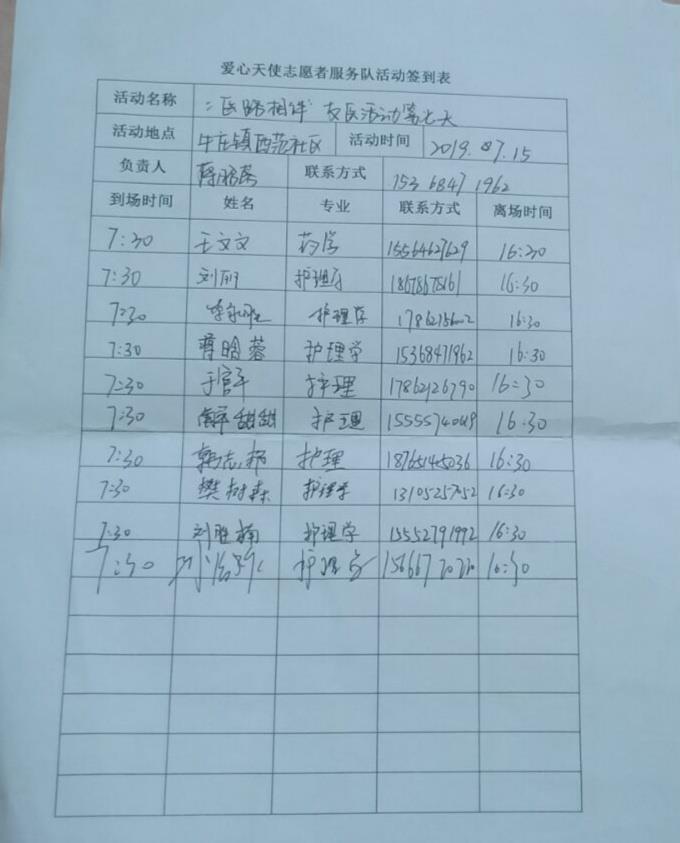 爱心天使志愿者服务队活动签到表
活动名称 医路相伴 支医活动第七天
活动地点 牛庄镇西范社区 活动时间 2019.07.15
负责人 蒋晗蓉 联系方式 153 6847 1962
到场时间 姓名 专业 联系方式 离场时间
7:30 王文文 药学 15564627629 16:30
7:30 刘丽 护理学 18678678161 16:30
7:30 护理学 16:30
7:30 蒋晗蓉 护理学 15368471962 16:30
7:30 于官平 护理 17862126790 16:30
7:30 甜甜 护理 16:30
7:30 郭志 护理 18765145036 16:30
7:30 樊树森 护理学 13105257052 16:30
7:30 刘胜楠 护理学 15552791992 16:30
7:30 护理学 16:30